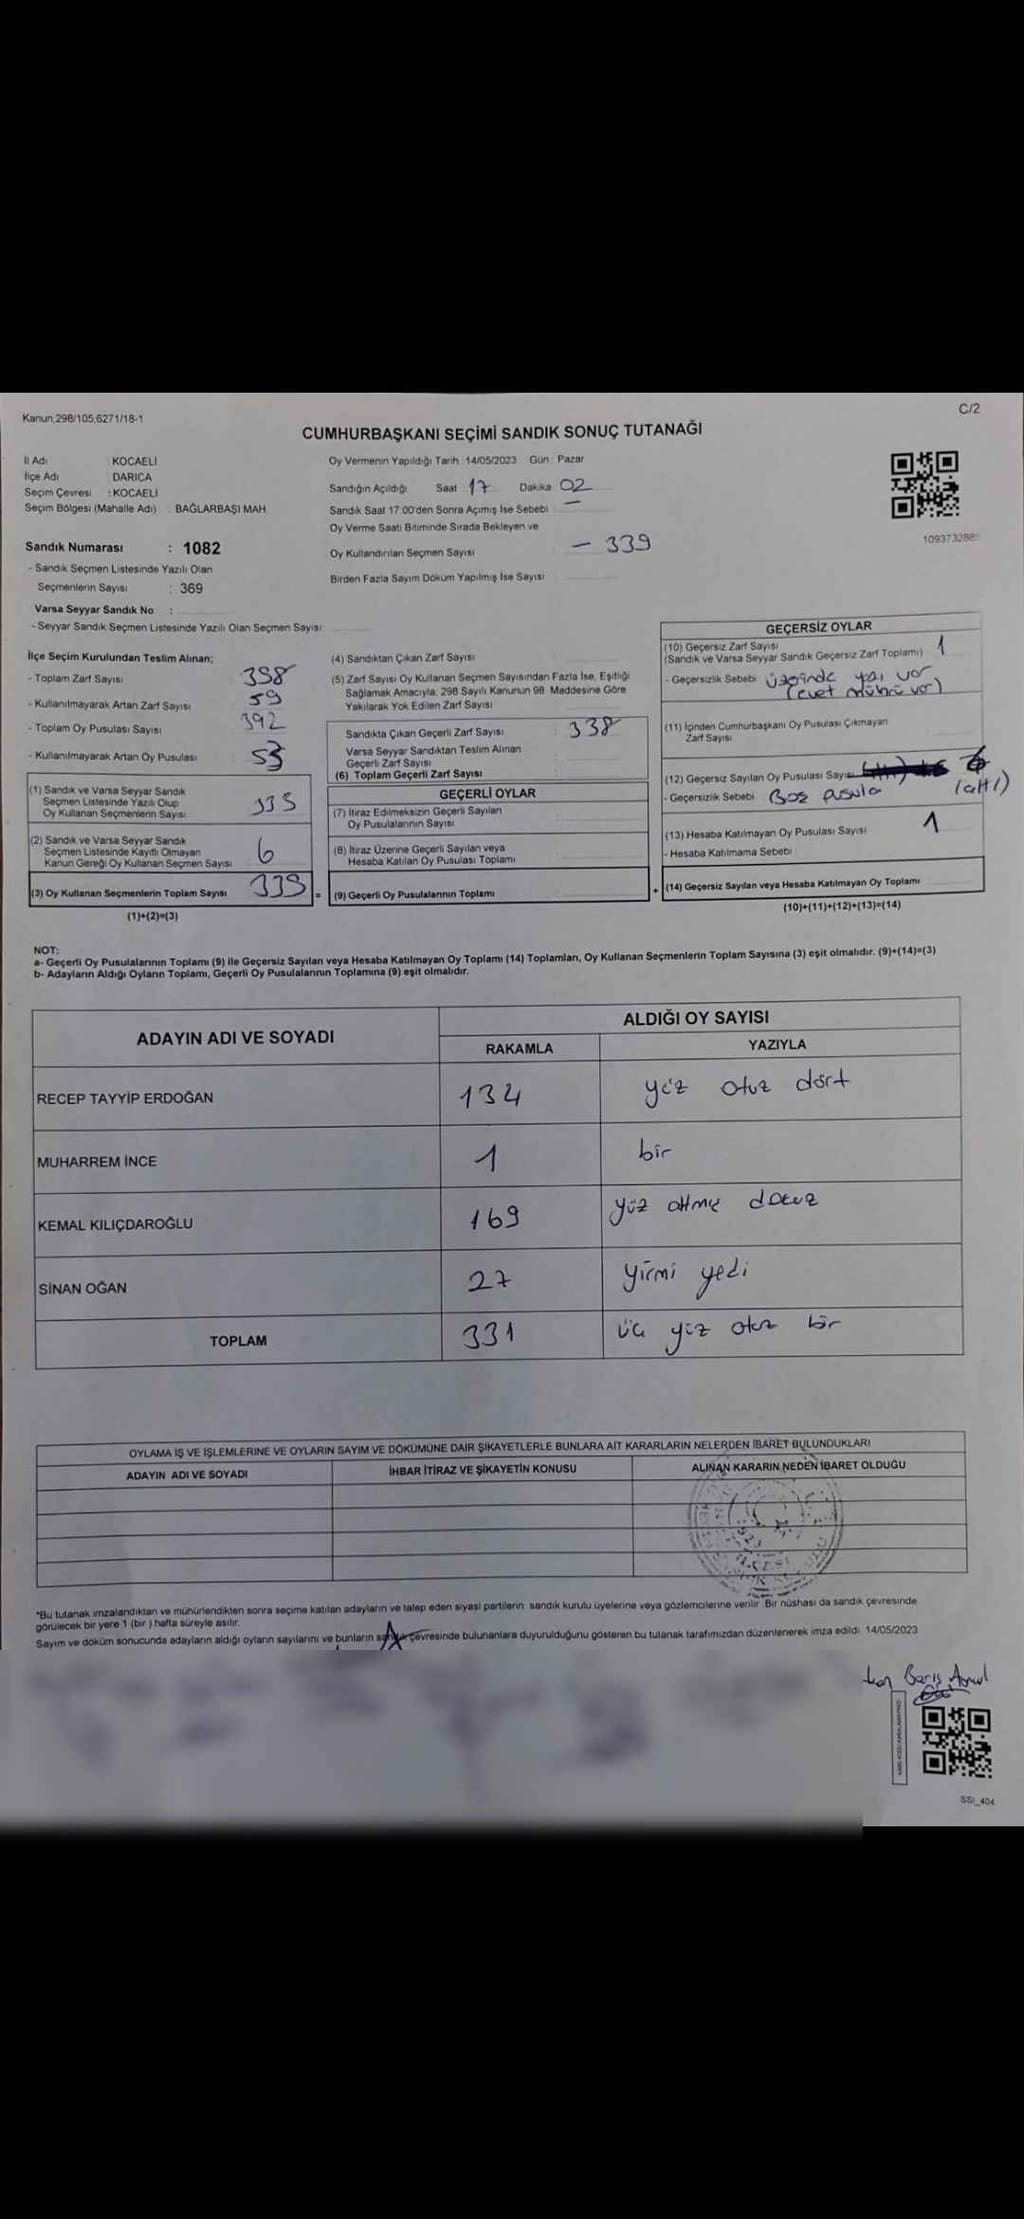 Kanun,298/105,6271/18-1
C/2
CUMHURBAŞKANI SEÇİMİ SANDIK SONUÇ TUTANAĞI
İl Adı : KOCAELİ
İlçe Adı : DARICA
Seçim Çevresi : KOCAELİ
Seçim Bölgesi (Mahalle Adı) : BAĞLARBAŞI MAH.
Sandık Numarası : 1082
- Sandık Seçmen Listesinde Yazılı Olan
Seçmenlerin Sayısı : 369
Varsa Seyyar Sandık No :
- Seyyar Sandık Seçmen Listesinde Yazılı Olan Seçmen Sayısı:
Oy Vermenin Yapıldığı Tarih :14/05/2023 Gün : Pazar
Sandığın Açıldığı Saat : 17 Dakika : 02
Sandık Saat 17:00'den Sonra Açımış İse Sebebi : —
Oy Verme Saati Bitiminde Sırada Bekleyen ve
Oy Kullandırılan Seçmen Sayısı : — 339
Birden Fazla Sayım Döküm Yapılmış İse Sayısı :
1093732885
İlçe Seçim Kurulundan Teslim Alınan;
- Toplam Zarf Sayısı : 398
- Kullanılmayarak Artan Zarf Sayısı : 59
- Toplam Oy Pusulası Sayısı : 392
- Kullanılmayarak Artan Oy Pusulası : 53
(1) Sandık ve Varsa Seyyar Sandık
Seçmen Listesinde Yazılı Olup
Oy Kullanan Seçmenlerin Sayısı :
(2) Sandık ve Varsa Seyyar Sandık
Seçmen Listesinde Kayıtlı Olmayan
Kanun Gereği Oy Kullanan Seçmen Sayısı : 6
(3) Oy Kullanan Seçmenlerin Toplam Sayısı : 339 =
(1)+(2)=(3)
(4) Sandıktan Çıkan Zarf Sayısı :
(5) Zarf Sayısı Oy Kullanan Seçmen Sayısından Fazla İse, Eşitliği
Sağlamak Amacıyla, 298 Sayılı Kanunun 98. Maddesine Göre
Yakılarak Yok Edilen Zarf Sayısı :
Sandıkta Çıkan Geçerli Zarf Sayısı : 338
Varsa Seyyar Sandıktan Teslim Alınan
Geçerli Zarf Sayısı :
(6) Toplam Geçerli Zarf Sayısı :
GEÇERLİ OYLAR
(7) İtiraz Edilmeksizin Geçerli Sayılan
Oy Pusulalarının Sayısı :
(8) İtiraz Üzerine Geçerli Sayılan veya
Hesaba Katılan Oy Pusulası Toplamı :
(9) Geçerli Oy Pusulalarının Toplamı : +
GEÇERSİZ OYLAR
(10) Geçersiz Zarf Sayısı
(Sandık ve Varsa Seyyar Sandık Geçersiz Zarf Toplamı) : 1
- Geçersizlik Sebebi : üzerinde yazı var
(evet mührü var)
(11) İçinden Cumhurbaşkanı Oy Pusulası Çıkmayan
Zarf Sayısı :
(12) Geçersiz Sayılan Oy Pusulası Sayısı : 6
- Geçersizlik Sebebi : Boş pusula (altı)
(13) Hesaba Katılmayan Oy Pusulası Sayısı : 1
- Hesaba Katılmama Sebebi :
(14) Geçersiz Sayılan veya Hesaba Katılmayan Oy Toplamı :
(10)+(11)+(12)+(13)=(14)
NOT:
a- Geçerli Oy Pusulalarının Toplamı (9) ile Geçersiz Sayılan veya Hesaba Katılmayan Oy Toplamı (14) Toplamları, Oy Kullanan Seçmenlerin Toplam Sayısına (3) eşit olmalıdır. (9)+(14)=(3)
b- Adayların Aldığı Oyların Toplamı, Geçerli Oy Pusulalarının Toplamına (9) eşit olmalıdır.
ADAYIN ADI VE SOYADI
ALDIĞI OY SAYISI
RAKAMLA YAZIYLA
RECEP TAYYİP ERDOĞAN 134 yüz otuz dört
MUHARREM İNCE 1 bir
KEMAL KILIÇDAROĞLU 169 yüz altmış dokuz
SİNAN OĞAN 27 yirmi yedi
TOPLAM 331 üç yüz otuz bir
OYLAMA İŞ VE İŞLEMLERİNE VE OYLARIN SAYIM VE DÖKÜMÜNE DAİR ŞİKAYETLERLE BUNLARA AİT KARARLARIN NELERDEN İBARET BULUNDUKLARI
ADAYIN ADI VE SOYADI İHBAR İTİRAZ VE ŞİKAYETİN KONUSU ALINAN KARARIN NEDEN İBARET OLDUĞU
*Bu tutanak imzalandıktan ve mühürlendikten sonra seçime katılan adayların ve talep eden siyasi partilerin sandık kurulu üyelerine veya gözlemcilerine verilir. Bir nüshası da sandık çevresinde
görülecek bir yere 1 (bir ) hafta süreyle asılır.
Sayım ve döküm sonucunda adayların aldığı oyların sayılarını ve bunların sandık çevresinde bulunanlara duyurulduğunu gösteren bu tutanak tarafımızdan düzenlenerek imza edildi. 14/05/2023
Barış
SSI_404